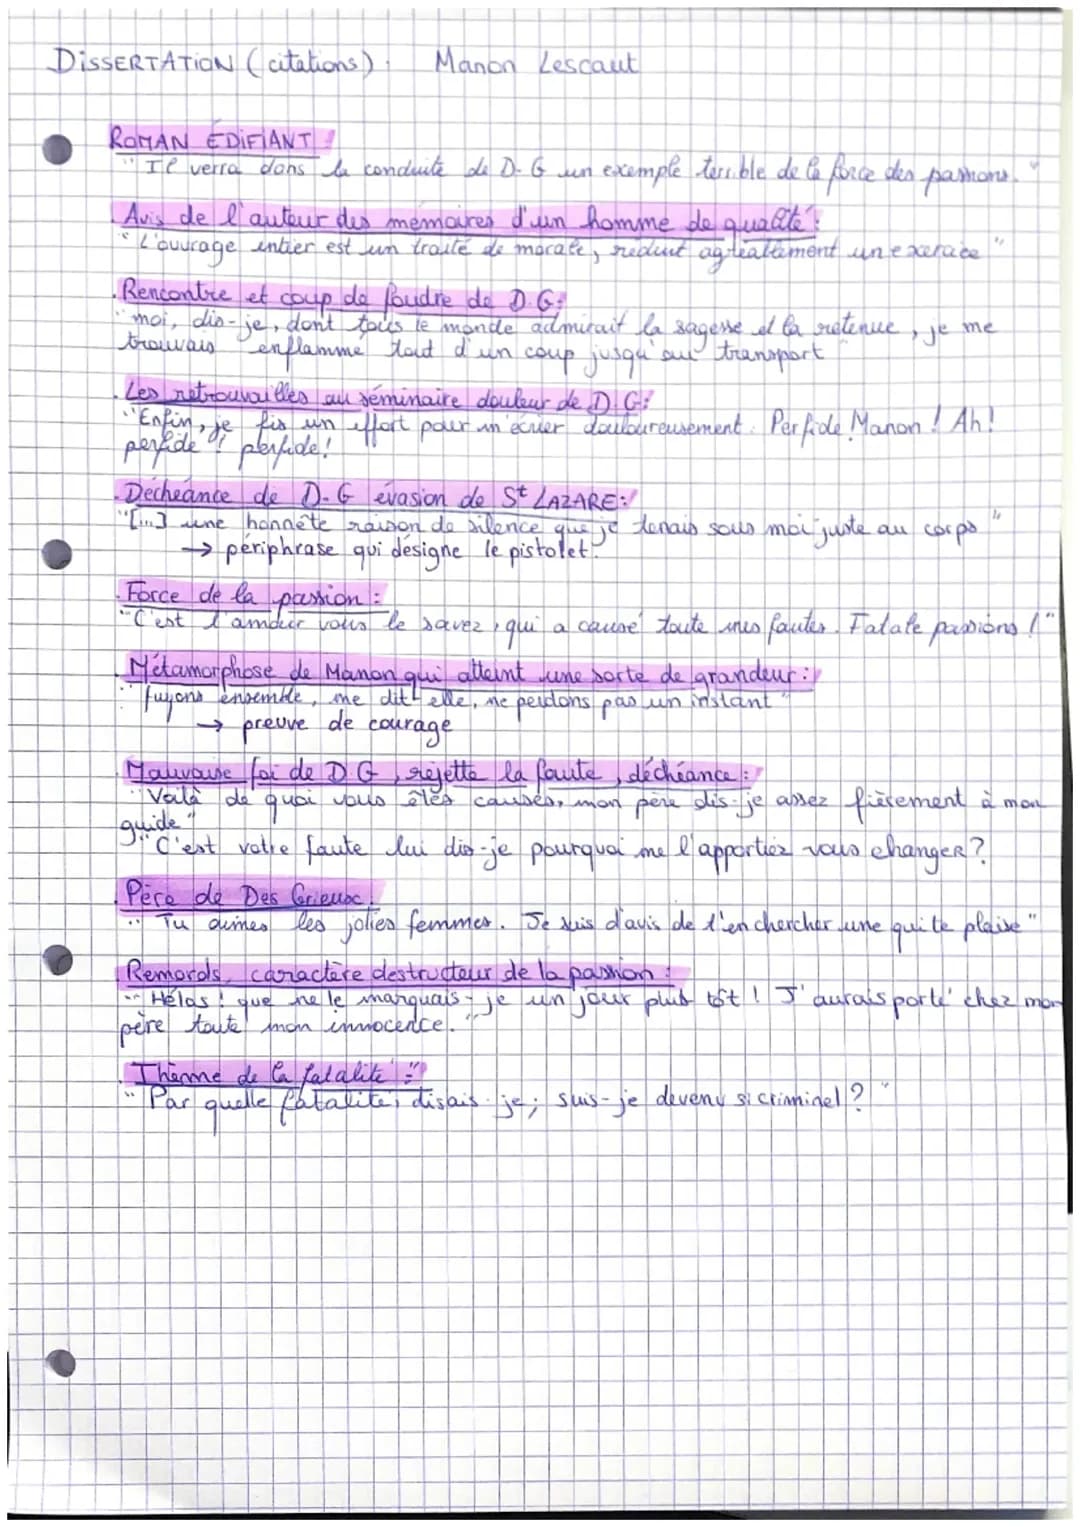 DISSERTATION (citations) : Manon Lescaut
ROMAN ÉDIFIANT :
"Il verra dans la conduite de D-G un exemple terrible de la force des passions."
Avis de l'auteur des mémoires d'un homme de qualité :
"L'ouvrage entier est un traité de morale, réduit agréablement un exercice"
Rencontre et coup de foudre de D.G:
"moi, dis-je, dont tous le monde admirait la sagesse et la retenue, je me
trouvais enflammé tout d'un coup jusqu'au transport"
Les retrouvailles au séminaire douleur de D.G:
"Enfin, je fis un effort pour m'écrier douloureusement : Perfide Manon ! Ah !
perfide ! perfide !
Déchéance de D-G évasion de St LAZARE :
"[...] une honnête raison de silence que je tenais sous moi juste au corps"
→ périphrase qui désigne le pistolet.
Force de la passion :
"C'est l'amour vous le savez, qui a causé toute mes fautes. Fatale passions !"
Métamorphose de Manon qui atteint une sorte de grandeur :
"fuyons ensemble, me dit-elle, ne perdons pas un instant"
→ preuve de courage
Mauvaise foi de D G, rejette la faute, déchéance :
"Voilà de quoi vous êtes causes, mon père dis-je assez fièrement à mon
guide"
"C'est votre faute lui dis-je pourquoi me l'apportiez vous changer ?
Père de Des Grieux
"Tu aimes les jolies femmes. Je suis d'avis de t'en chercher une qui te plaise"
Remords, caractère destructeur de la passion :
"Hélas ! que ne le marquais-je un jour plus tôt ! J'aurais porté chez mon
père toute mon innocence."
Thème de la fatalité :
"Par quelle fatalité, disais-je, suis-je devenu si criminel ?"